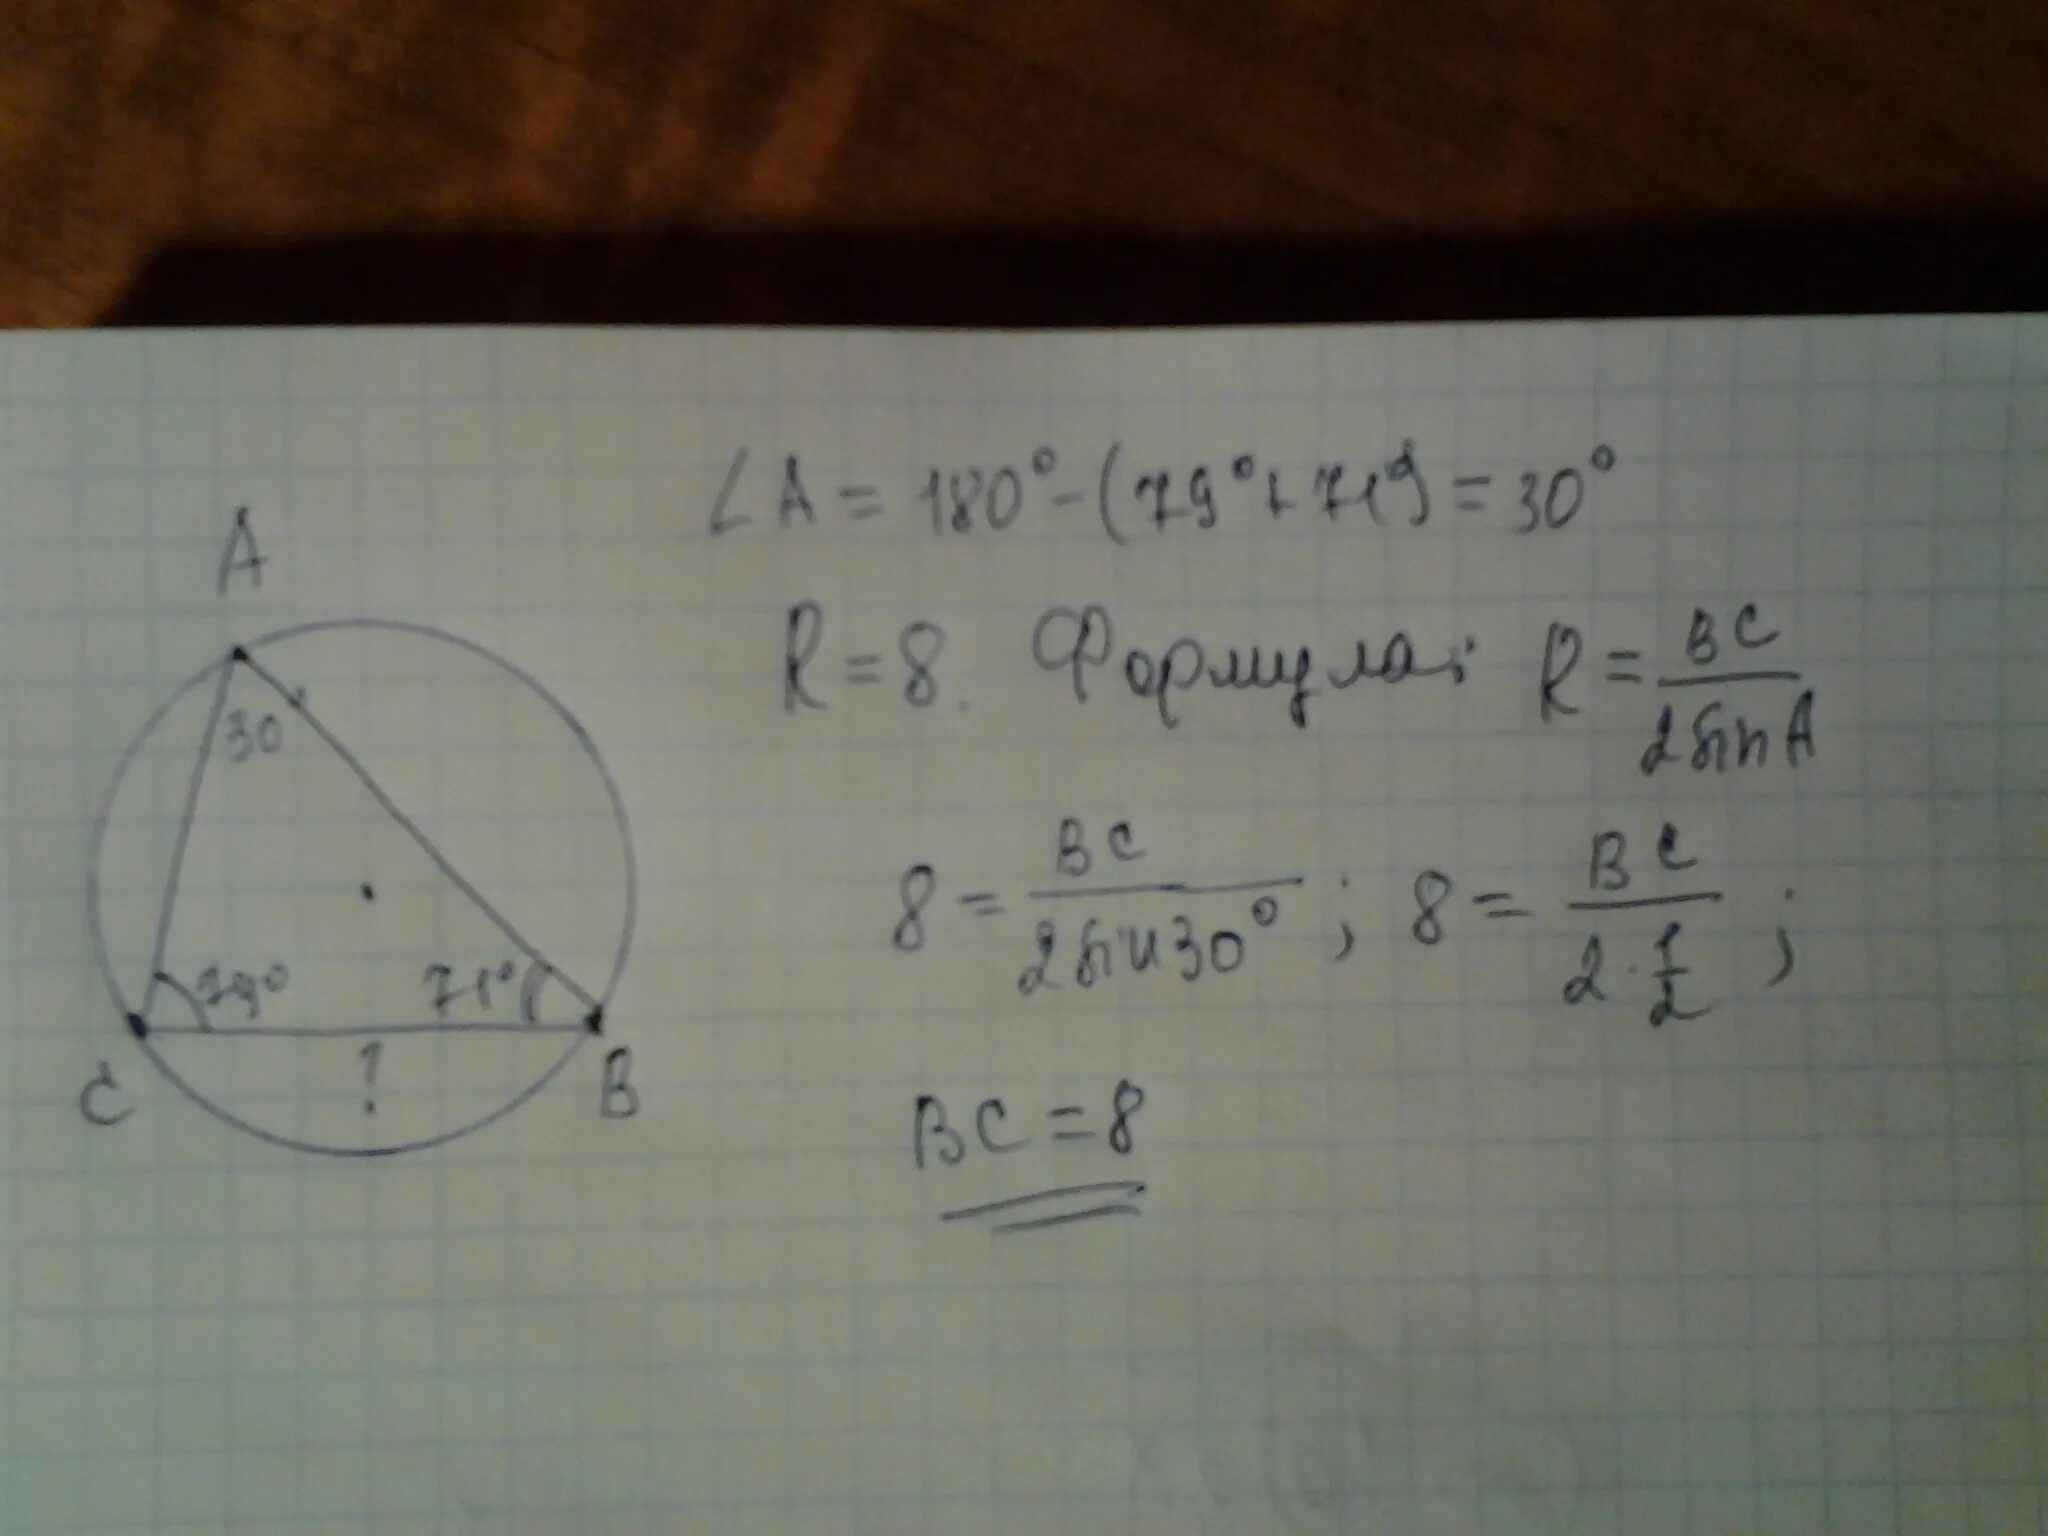 ∠A = 180° - (79° + 71°) = 30°
R = 8. Формула: R = BC / 2 sin A
8 = BC / 2 sin 30° ; 8 = BC / 2 · 1/2 ;
BC = 8
A
30
79° 71°
C ? B